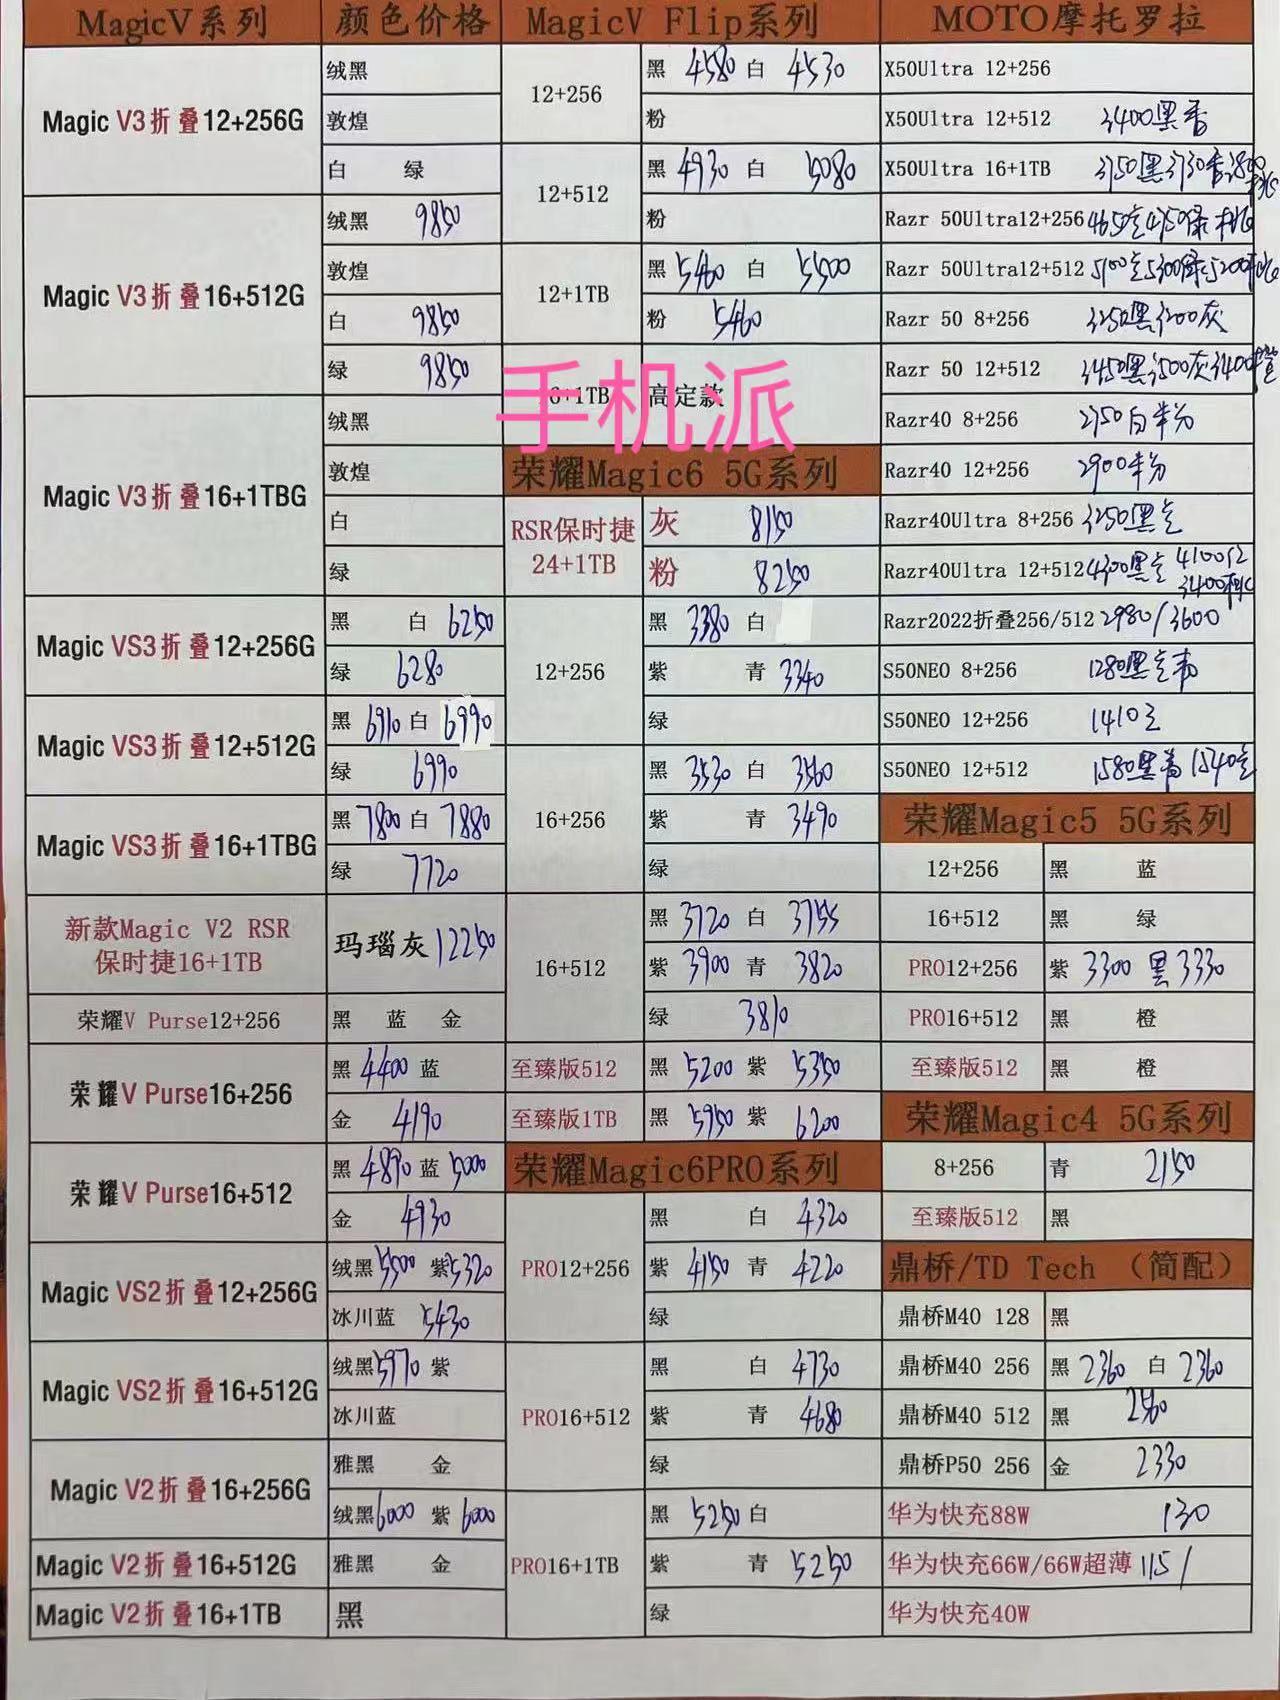 MagicV系列 颜色价格
Magic V3折叠12+256G 绒黑
敦煌
白 绿
Magic V3折叠16+512G 绒黑 9850
敦煌
白 9850
绿 9850
Magic V3折叠16+1TBG 绒黑
敦煌
白
绿
Magic VS3折叠12+256G 黑 白 6250
绿 6280
Magic VS3折叠12+512G 黑 6910 白 6990
绿 6990
Magic VS3折叠16+1TBG 黑 7800 白 7880
绿 7720
新款Magic V2 RSR
保时捷16+1TB 玛瑙灰 12250
荣耀V Purse12+256 黑 蓝 金
荣耀V Purse16+256 黑 4400 蓝
金 4190
荣耀V Purse16+512 黑 4890 蓝 5000
金 4930
Magic VS2折叠12+256G 绒黑 5500 紫 5320
冰川蓝 5430
Magic VS2折叠16+512G 绒黑 5970 紫
冰川蓝
Magic V2折叠16+256G 雅黑 金
绒黑 6000 紫 6000
Magic V2折叠16+512G 雅黑 金
Magic V2折叠16+1TB 黑
MagicV Flip系列
12+256 黑 4580 白 4530
粉
12+512 黑 4930 白 5080
粉
12+1TB 黑 5460 白 5500
粉 5460
6+1TB 高定款
手机派
荣耀Magic6 5G系列
RSR保时捷
24+1TB 灰 8150
粉 8250
12+256 黑 3380 白
紫 青 3340
绿
16+256 黑 3530 白 3560
紫 青 3490
绿
16+512 黑 3720 白 3755
紫 3900 青 3820
绿 3810
至臻版512 黑 5200 紫 5350
至臻版1TB 黑 5950 紫 6200
荣耀Magic6PRO系列
PRO12+256 黑 白 4320
紫 4150 青 4220
绿
PRO16+512 黑 白 4730
紫 青 4680
绿
PRO16+1TB 黑 5250 白
紫 青 5250
绿
MOTO摩托罗拉
X50Ultra 12+256
X50Ultra 12+512 3400黑香
X50Ultra 16+1TB 3750黑3730香
Razr 50Ultra12+256 4650 4750绿
Razr 50Ultra12+512 5100 5300绿5200
Razr 50 8+256 3250黑3200灰
Razr 50 12+512 3450黑3500灰3400橙
Razr40 8+256 2750白
Razr40 12+256 2900
Razr40Ultra 8+256 3250黑
Razr40Ultra 12+512 4300黑 4100红
3400
Razr2022折叠256/512 2980/3600
S50NEO 8+256 1280黑
S50NEO 12+256 1410
S50NEO 12+512 1580黑 1540
荣耀Magic5 5G系列
12+256 黑 蓝
16+512 黑 绿
PRO12+256 紫 3300 黑 3330
PRO16+512 黑 橙
至臻版512 黑 橙
荣耀Magic4 5G系列
8+256 青 2150
至臻版512 黑
鼎桥/TD Tech （简配）
鼎桥M40 128 黑
鼎桥M40 256 黑 2360 白 2360
鼎桥M40 512 黑 2560
鼎桥P50 256 金 2330
华为快充88W 130
华为快充66W/66W超薄 115/
华为快充40W